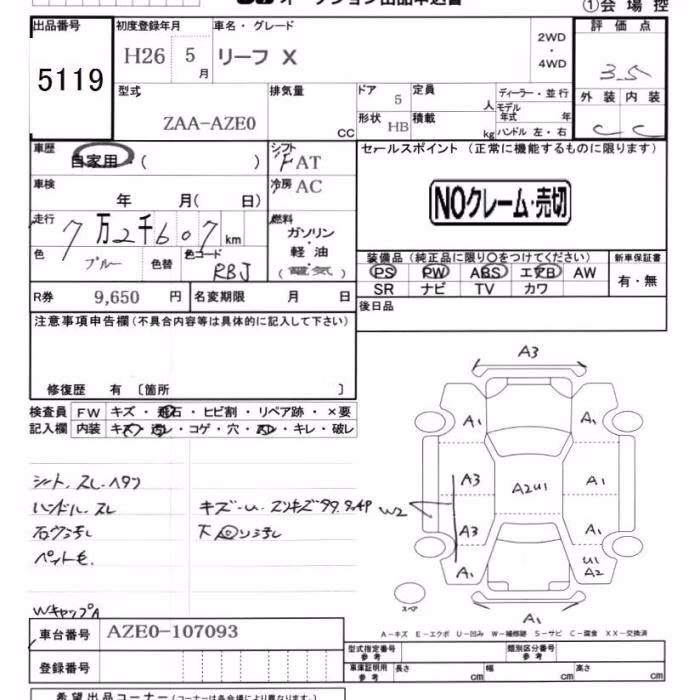 ①会場控
出品番号
5119
初度登録年月
H26 5月
車名・グレード
リーフ X
2WD
・
4WD
評価点
3.5
型式
ZAA-AZE0
排気量
CC
ドア
5
定員
人
形状
HB
積載
kg
ディーラー・並行
モデル年式 年
ハンドル 左・右
外装 内装
C C
車歴
自家用・( )
シフト
FAT
セールスポイント(正常に機能するものに限ります)
NOクレーム・売切
車検
年 月( 日)
冷房
AC
走行
7万2千607km
燃料
ガソリン
・
軽油
(電気)
色
ブルー
色替
色コード
RBJ
装備品(純正品に限り○をつけてください)
PS PW ABS エアB AW
SR ナビ TV カワ
新車保証書
有・無
R券 9,650 円
名変期限 月 日
後日品
注意事項申告欄(不具合内容等は具体的に記入して下さい)
修復歴 有〔箇所 〕
検査員
記入欄
FW キズ・飛石・ヒビ割・リペア跡・×要
内装 キズ・汚レ・コゲ・穴・スレ・キレ・破レ
シート、スレ、ヘタリ
ハンドル、スレ
ペット毛、
WキャップA
W2
A3
A1
A1
A3
A2U1
A1
A3
A1
A1
U1
A2
A1
スペア
A-キズ E-エクボ U-凹み W-補修跡 S-サビ C-腐食 XX-交換済
車台番号 AZE0-107093
登録番号
型式指定番号
参考
類別区分番号
参考
車庫証明用
参考
長さ cm
幅 cm
高さ cm
希望出品コーナー(コーナーは各会場により異なります)